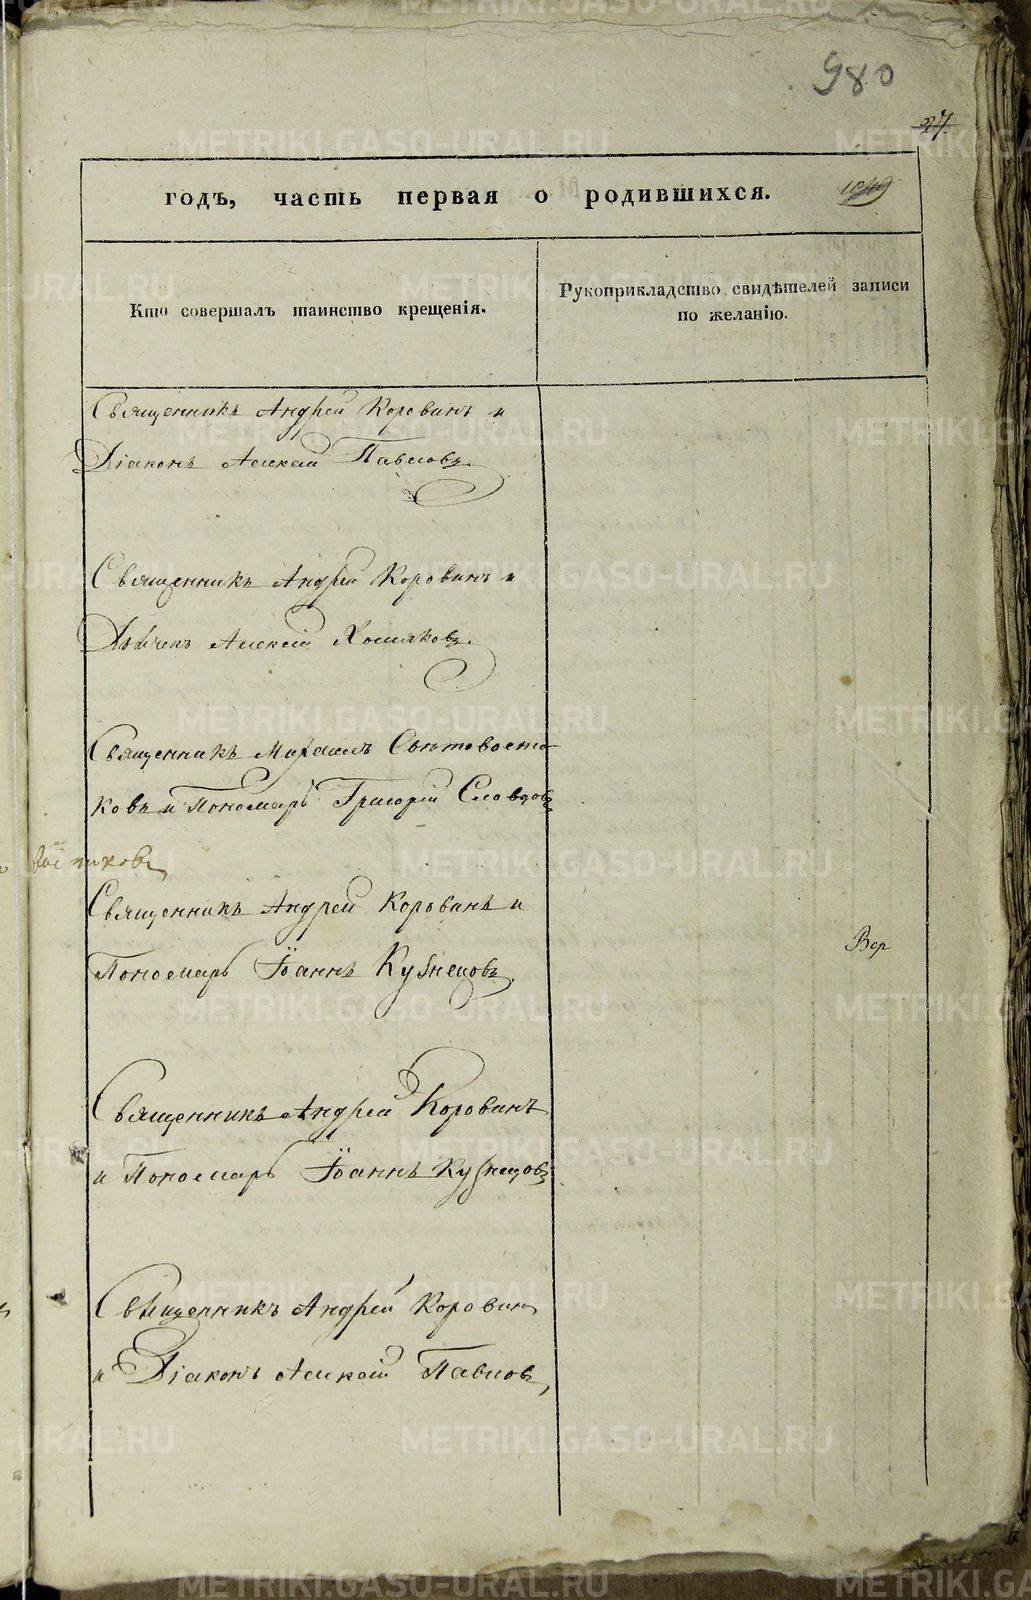 980
27
годъ, часть первая о родившихся.
1049
Кто совершалъ таинство крещенія.
Рукоприкладство свидѣтелей записи
по желанію.
Священникъ Андрей Коровинъ и
Діаконъ Алексей Павловъ.
Священникъ Андрей Коровинъ и
Дьячекъ Алексей Хомяковъ.
Священникъ Михаилъ Свѣтовосто-
ковъ и Пономарь Григорій Словцовъ
Священникъ Андрей Коровинъ и
Пономарь Іоаннъ Кузнецовъ.
Вер
Священникъ Андрей Коровинъ
и Пономарь Іоаннъ Кузнецовъ
Священникъ Андрей Коровинъ
и Діаконъ Алексій Павловъ,
METRIKI.GASO-URAL.RU